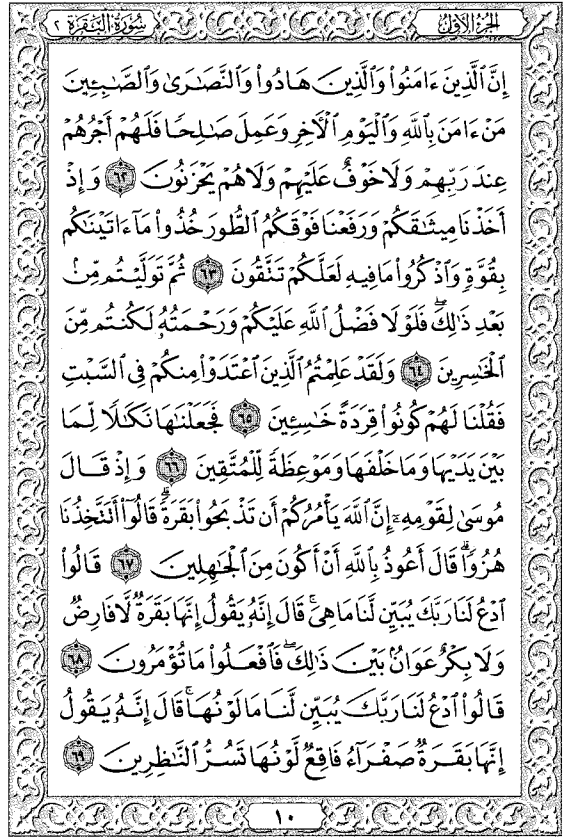 الجزء الأول
سورة البقرة ٢
إِنَّ ٱلَّذِينَ ءَامَنُوا۟ وَٱلَّذِينَ هَادُوا۟ وَٱلنَّصَـٰرَىٰ وَٱلصَّـٰبِـِٔينَ
مَنْ ءَامَنَ بِٱللَّهِ وَٱلْيَوْمِ ٱلْـَٔاخِرِ وَعَمِلَ صَـٰلِحًا فَلَهُمْ أَجْرُهُمْ
عِندَ رَبِّهِمْ وَلَا خَوْفٌ عَلَيْهِمْ وَلَا هُمْ يَحْزَنُونَ ٦٢ وَإِذْ
أَخَذْنَا مِيثَـٰقَكُمْ وَرَفَعْنَا فَوْقَكُمُ ٱلطُّورَ خُذُوا۟ مَآ ءَاتَيْنَـٰكُم
بِقُوَّةٍ وَٱذْكُرُوا۟ مَا فِيهِ لَعَلَّكُمْ تَتَّقُونَ ٦٣ ثُمَّ تَوَلَّيْتُم مِّنۢ
بَعْدِ ذَٰلِكَ ۖ فَلَوْلَا فَضْلُ ٱللَّهِ عَلَيْكُمْ وَرَحْمَتُهُۥ لَكُنتُم مِّنَ
ٱلْخَـٰسِرِينَ ٦٤ وَلَقَدْ عَلِمْتُمُ ٱلَّذِينَ ٱعْتَدَوْا۟ مِنكُمْ فِى ٱلسَّبْتِ
فَقُلْنَا لَهُمْ كُونُوا۟ قِرَدَةً خَـٰسِـِٔينَ ٦٥ فَجَعَلْنَـٰهَا نَكَـٰلًا لِّمَا
بَيْنَ يَدَيْهَا وَمَا خَلْفَهَا وَمَوْعِظَةً لِّلْمُتَّقِينَ ٦٦ وَإِذْ قَالَ
مُوسَىٰ لِقَوْمِهِۦٓ إِنَّ ٱللَّهَ يَأْمُرُكُمْ أَن تَذْبَحُوا۟ بَقَرَةً ۖ قَالُوٓا۟ أَتَتَّخِذُنَا
هُزُوًا ۖ قَالَ أَعُوذُ بِٱللَّهِ أَنْ أَكُونَ مِنَ ٱلْجَـٰهِلِينَ ٦٧ قَالُوا۟
ٱدْعُ لَنَا رَبَّكَ يُبَيِّن لَّنَا مَا هِىَ ۚ قَالَ إِنَّهُۥ يَقُولُ إِنَّهَا بَقَرَةٌ لَّا فَارِضٌ
وَلَا بِكْرٌ عَوَانٌۢ بَيْنَ ذَٰلِكَ ۖ فَٱفْعَلُوا۟ مَا تُؤْمَرُونَ ٦٨
قَالُوا۟ ٱدْعُ لَنَا رَبَّكَ يُبَيِّن لَّنَا مَا لَوْنُهَا ۚ قَالَ إِنَّهُۥ يَقُولُ
إِنَّهَا بَقَرَةٌ صَفْرَآءُ فَاقِعٌ لَّوْنُهَا تَسُرُّ ٱلنَّـٰظِرِينَ ٦٩
١٠